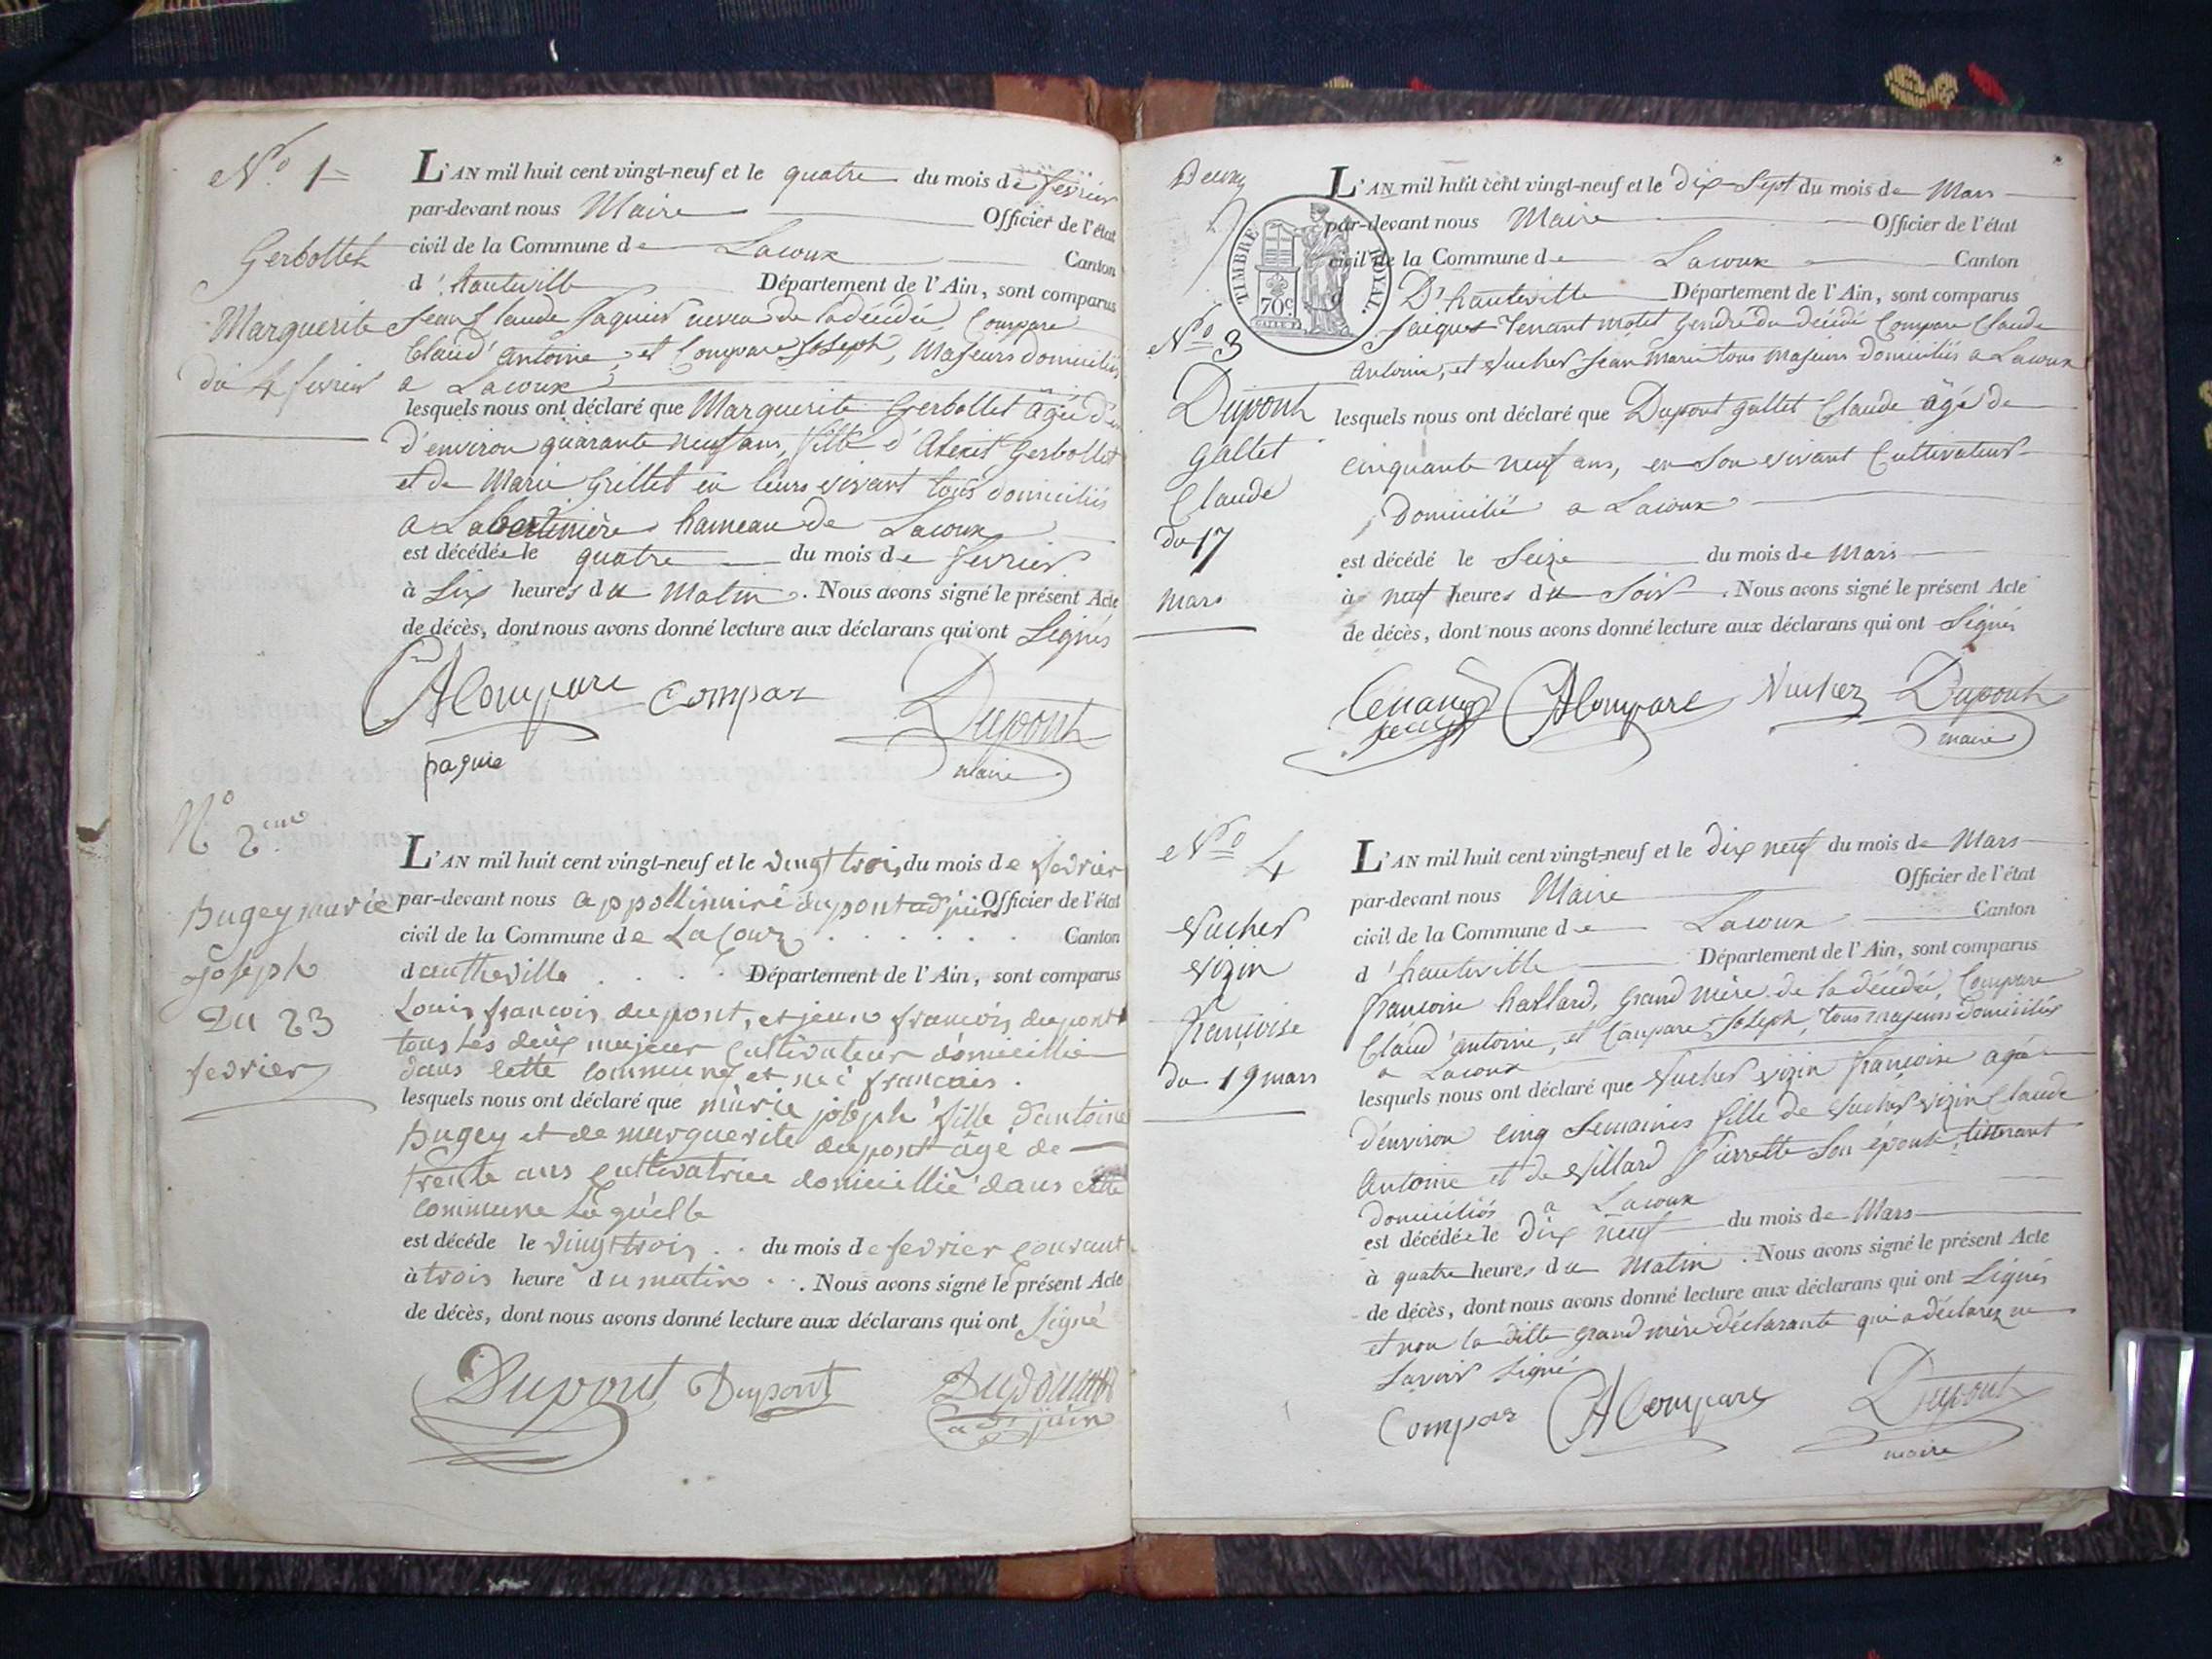 N.o 1
Gerbollet
Marguerite
du 4 fevrier
L'AN mil huit cent vingt-neuf et le quatre du mois de fevrier
par-devant nous Maire Officier de l'état
civil de la Commune de Lacoux Canton
d'hauteville Département de l'Ain, sont comparus
Jean Claude Paquier neveu de la décédée, Compare
Claud' antoine, et Compare Joseph, Majeurs domiciliés
a Lacoux
lesquels nous ont déclaré que Marguerite Gerbollet agée
d'environ quarante neuf ans, fille d'Alexis Gerbollet
et de Marie Grillet en leurs vivant tous domiciliés
a Labertinière hameau de Lacoux
est décédée le quatre du mois de fevrier
à Six heures du Matin. Nous avons signé le présent Acte
de décès, dont nous avons donné lecture aux déclarans qui ont Signés
CA Compare Compar Dupont
paquie maire
N.o 2.eme
Bugey marie
Joseph
Du 23
fevrier
L'AN mil huit cent vingt-neuf et le vingt trois du mois de fevrier
par-devant nous appollinaire dupont adjoin Officier de l'état
civil de la Commune de La Coux Canton
dautheville Département de l'Ain, sont comparus
Louis françois dupont, et jeune françois dupont
tous Les deux majeur Cultivateur domicillie
dans Cette commune et né françois.
lesquels nous ont déclaré que marie joseph fille dantoine
Bugey et de marguerite dupont âgé de
trente ans Cultivatrice domicillié dans cette
Commune La quelle
est décéde le vingt trois du mois de fevrier Courant
à trois heure du matin. Nous avons signé le présent Acte
de décès, dont nous avons donné lecture aux déclarans qui ont Signé
Dupont Dupont Dupont
adjoin
Deux
TIMBRE ROYAL.
70c.
N.o 3
Dupont
gallet
Claude
du 17
mars
L'AN mil huit cent vingt-neuf et le dix Sept du mois de Mars
par-devant nous Maire Officier de l'état
civil de la Commune de Lacoux Canton
D'hauteville Département de l'Ain, sont comparus
Jacques Tenant motet Gendre du décédé Compare Claude
Antoine, et Vucher Jean Marie tous Majeurs domiciliés a Lacoux
lesquels nous ont déclaré que Dupont gallet Claude âgé de
Cinquante neuf ans, en son vivant Cultivateur
Domicilié a Lacoux
est décédé le Seize du mois de Mars
à neuf heures du Soir. Nous avons signé le présent Acte
de décès, dont nous avons donné lecture aux déclarans qui ont Signés
Tenand CA Compare Vucher Dupont
maire
N.o 4
Vucher
Vizin
françoise
du 19 mars
L'AN mil huit cent vingt-neuf et le dix neuf du mois de Mars
par-devant nous Maire Officier de l'état
civil de la Commune de Lacoux Canton
d'hauteville Département de l'Ain, sont comparus
françoise hallard, grand mère de la décédée, Compare
Claud' antoine, et Compare Joseph, tous majeurs domiciliés
a Lacoux
lesquels nous ont déclaré que Vucher Vizin françoise agée
d'environ cinq Semaines fille de Vucher Vizin Claude
Antoine et de Villard Pierrette Son épouse,
domiciliés a Lacoux
est décédée le dix neuf du mois de Mars
à quatre heures du Matin. Nous avons signé le présent Acte
de décès, dont nous avons donné lecture aux déclarans qui ont Signés
et non la ditte grand mère déclarante qui a déclarez ne
savoir signé
Compar CA Compare Dupont
maire